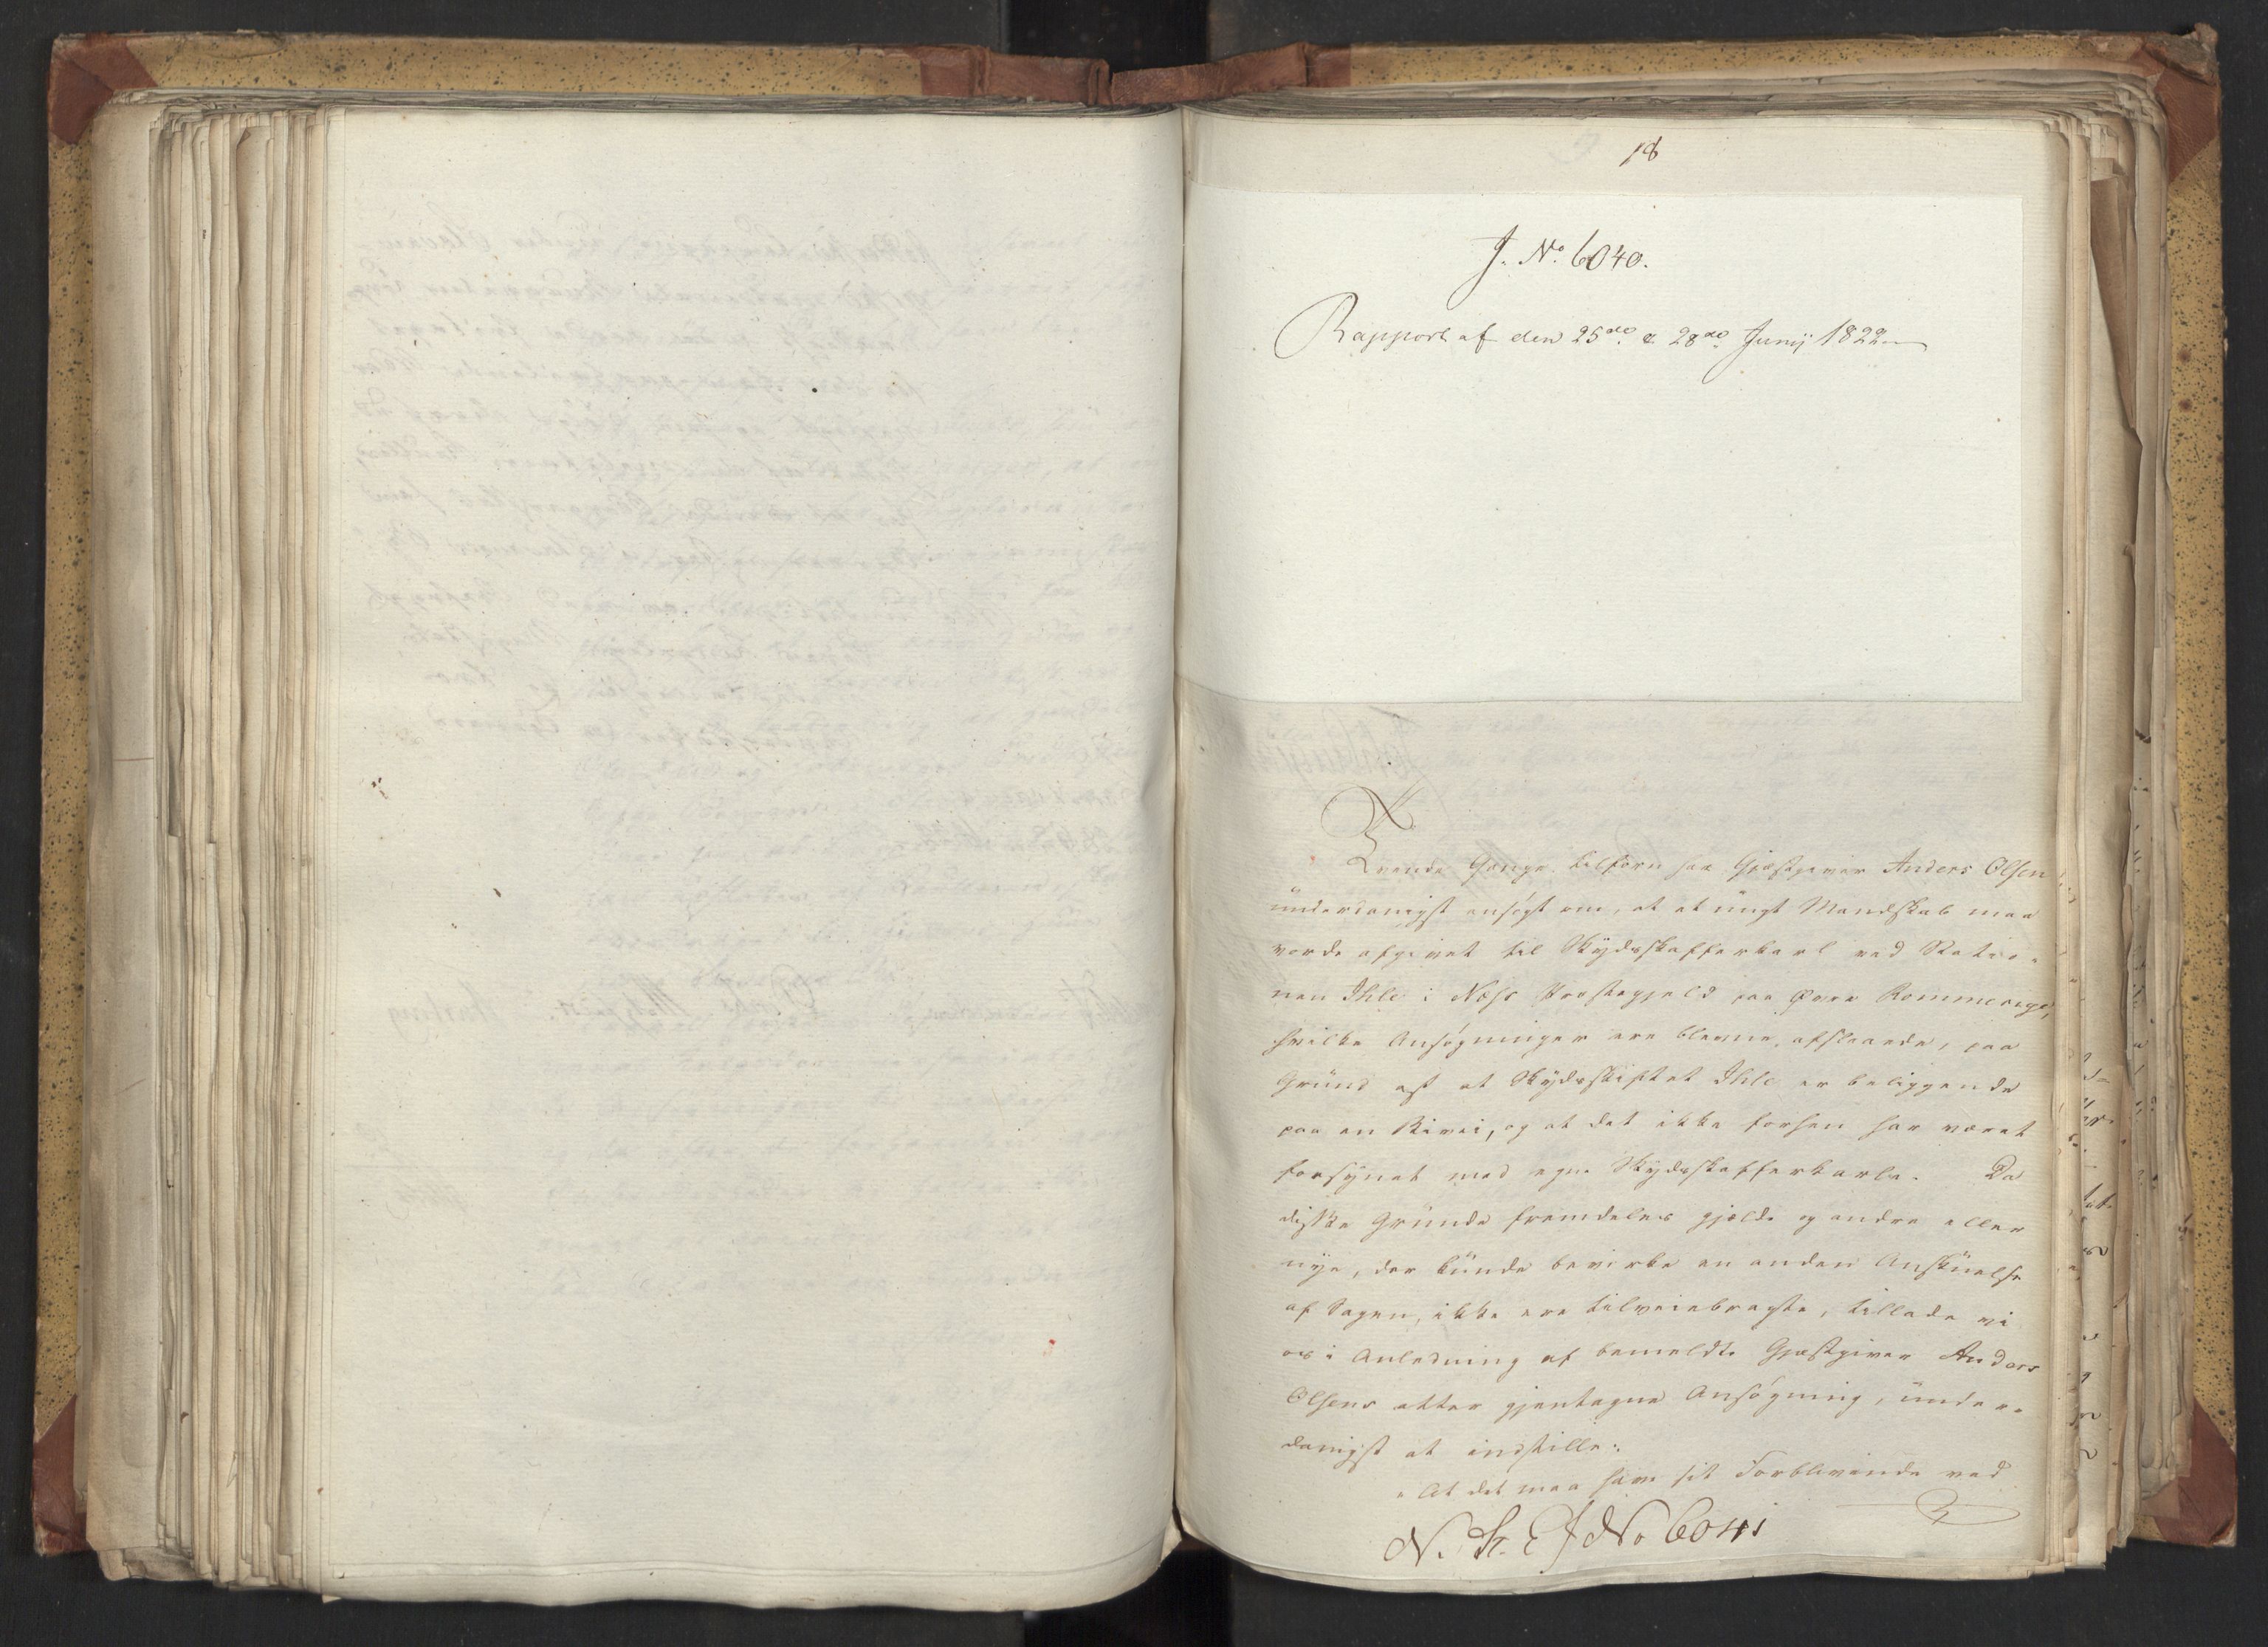 18
J. No. 6040.
Rapport af den 25de & 28de Junij 1822
Tvende Gange tilforn har Gjæstgiver Anders Olsen
underdanigst ansøgt om, at et ungt Mandskab maa
vorde afgivet til Skydsskafferkarl ved Statio-
nen Ihle i Næss Præstegjeld paa Øvre Rommerige,
hvilke Ansøgninger ere blevne afslaaede, paa
Grund af at Skydsskiftet Ihle er beliggende
paa en Bivei, og at det ikke forhen har været
forsynet med egne Skydsskafferkarle. Da
disse Grunde fremdeles gjælde og andre eller
nye, der kunde bevirke en anden Anskuelse
af Sagen, ikke ere tilveiebragte, tillade vi
os i Anledning af bemeldte Gjæstgiver Anders
Olsens atter gjentagne Ansøgning, under-
danigst at indstille:
"At det maa have sit Forblivende ved
N. St. E J No 6041